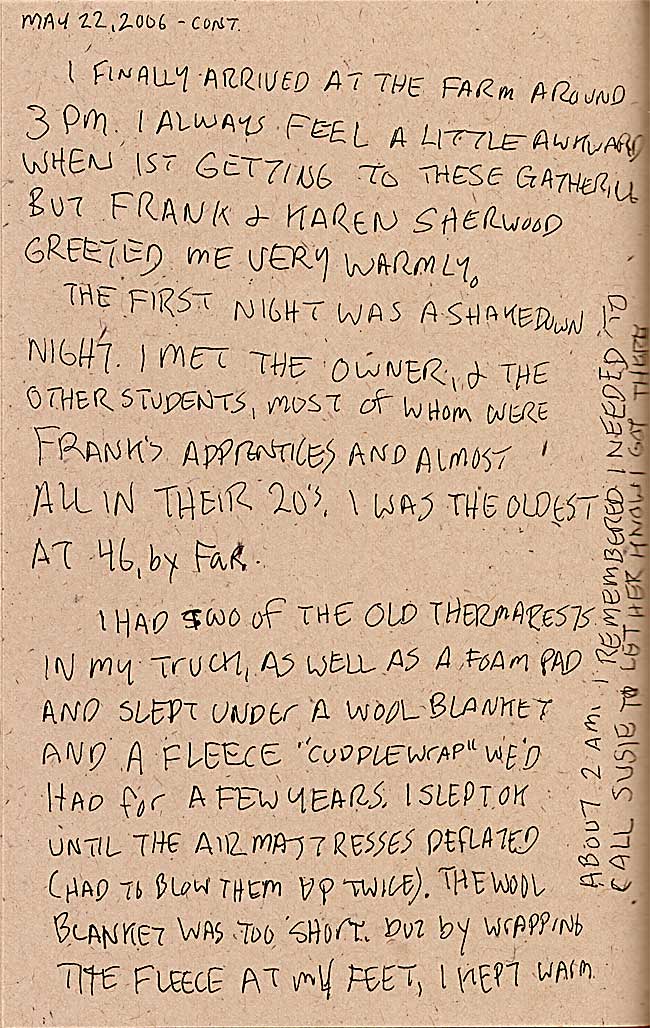 MAY 22, 2006 - CONT.
I FINALLY ARRIVED AT THE FARM AROUND
3 PM. I ALWAYS FEEL A LITTLE AWKWARD
WHEN 1ST GETTING TO THESE GATHERING
BUT FRANK & KAREN SHERWOOD
GREETED ME VERY WARMLY.
THE FIRST NIGHT WAS A SHAKEDOWN
NIGHT. I MET THE OWNER, & THE
OTHER STUDENTS, MOST OF WHOM WERE
FRANK'S APPRENTICES AND ALMOST
ALL IN THEIR 20'S. I WAS THE OLDEST
AT 46, by FAR.
I HAD TWO OF THE OLD THERMARESTS
IN MY TRUCK, AS WELL AS A FOAM PAD
AND SLEPT UNDER A WOOL BLANKET
AND A FLEECE "CUDDLEWRAP" WE'D
HAD for A FEW YEARS. I SLEPT OK
UNTIL THE AIR MATTRESSES DEFLATED
(HAD TO BLOW THEM UP TWICE). THE WOOL
BLANKET WAS TOO SHORT. BUT by WRAPPING
THE FLEECE AT MY FEET, I KEPT WARM
ABOUT 2 AM. I REMEMBERED I NEEDED TO
CALL SUSIE TO LET HER KNOW I GOT THERE